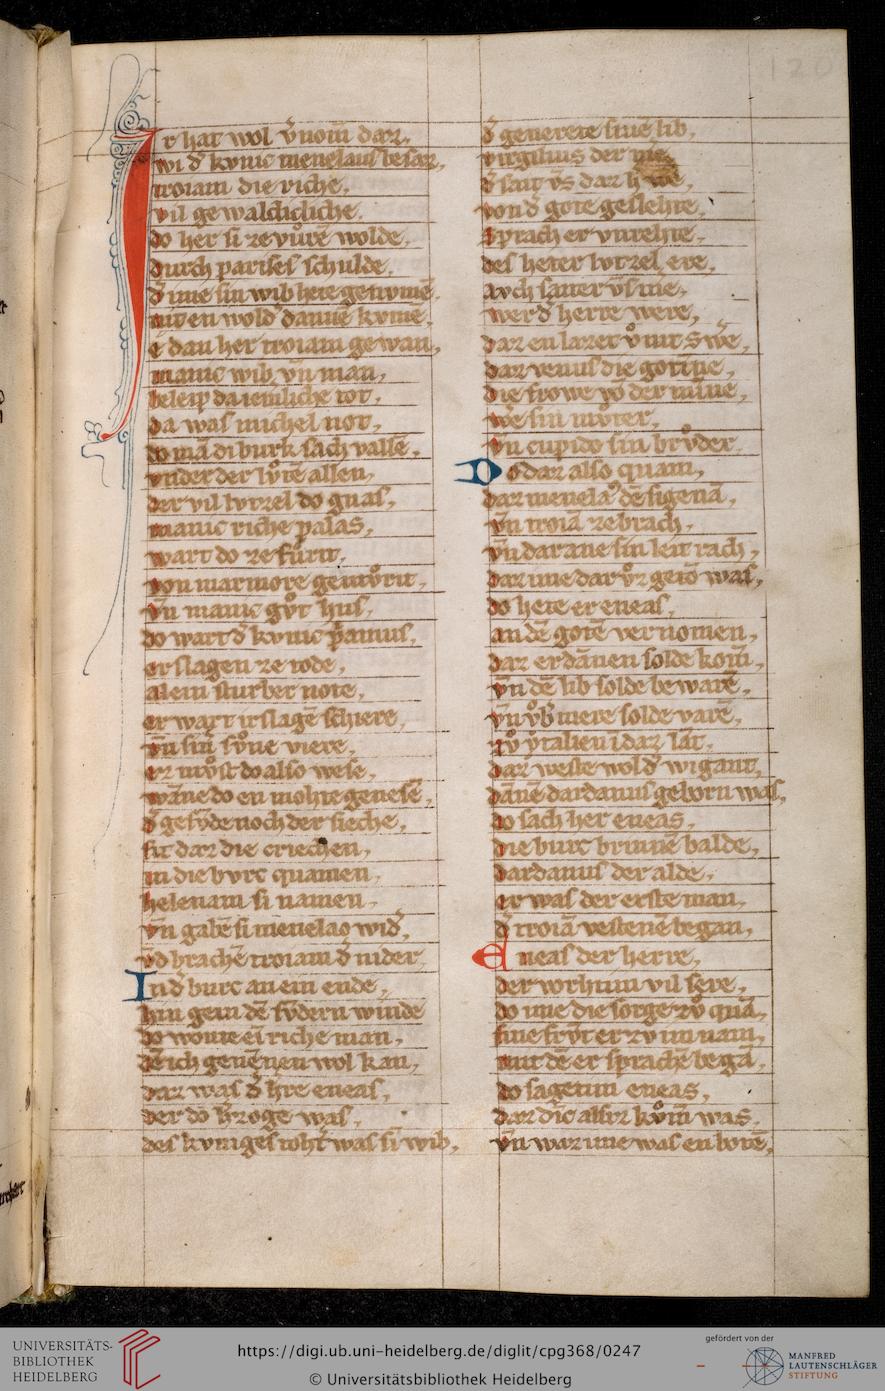 120
Ir hat wol v̄nom̄ daz,
wi d̕ kvnic menelaus besaz,
troiam die riche,
vil gewaldicliche.
do her si zevůrē wolde,
durch parises schulde.
d̕ ime sin wib hete genvmē
niten wold dannē kvmē.
ē dan her troiam gewan,
manic wib vn̄ man,
beleip da iemliche tot,
da was michel not,
do mā di burk sach vallē,
vnder der lv̊te allen,
der vil lvtzel do gnas,
manic riche palas,
wart do ze fůrit,
von marmore gemv̊rit,
vn̄ manic gv̊t hus,
do wart d̕ kvnic p̄amus,
erslagen ze tode,
alein sturber note,
er wart irslagē schiere,
vn̄ sin̄ sv̊ne viere,
ez mv̊st do also wese,
wāne do en mohte genesē,
d̕ gesvde noch der sieche,
sit daz die criechen,
in die bvrc quamen,
helenam si namen,
vn̄ gabē si menelao wid̕,
vn̄ brachē troiam d̕ nider
In d̕ burc an ein ende,
hin gein dē svdern winde
do wonte eī riche man,
dē ich genēnen wol kan,
daz was d̕ h̕re eneas,
der do h̕zoge was,
des kvniges toht̕ was sī wib,
d̕ generete sinē lib,
virgilius der
d̕ sait vs daz
von d̕ gote geslehte,
sprach er vnrehte,
des heter lvtzel ere,
avch
werd̕ herre were,
daz
daz venus die gotīne,
die frowe vō der minne,
wē sin mv̊ter,
vn̄ cupido sin brv̊der
Do daz also quam,
daz menela᾽ dē sigenā,
vn̄ troiā zebrach,
vn̄ dar ane sin leit rach,
daz ime dar vůr getō was,
do hete er eneas,
an dē gotē vernomen,
daz er dānen solde kom̄,
vn̄ dē lib solde bewarē,
vn̄ v̊b̕ mere solde varē,
zv̊ ytalien i daz lāt,
daz weste wol d̕ wigant,
dānē dardanus geborn was,
do sach her eneas,
die burc brinnē balde,
dardanus der alde,
er was der erste man,
d̕ troiā vestenē began,
Eneas der herre,
der vorhtim vil sere,
do ime die sorge zv̊ quā,
sine frv̊t er zv im nam,
mit dē er sprachē begā,
do sagetim eneas,
daz dīc alsvz kv̊m̄ was,
vn̄ waz ime was enbotē,
UNIVERSITÄTS-
BIBLIOTHEK
HEIDELBERG
https://digi.ub.uni-heidelberg.de/diglit/cpg368/0247
© Universitätsbibliothek Heidelberg
gefördert von der
MANFRED
LAUTENSCHLÄGER
STIFTUNG